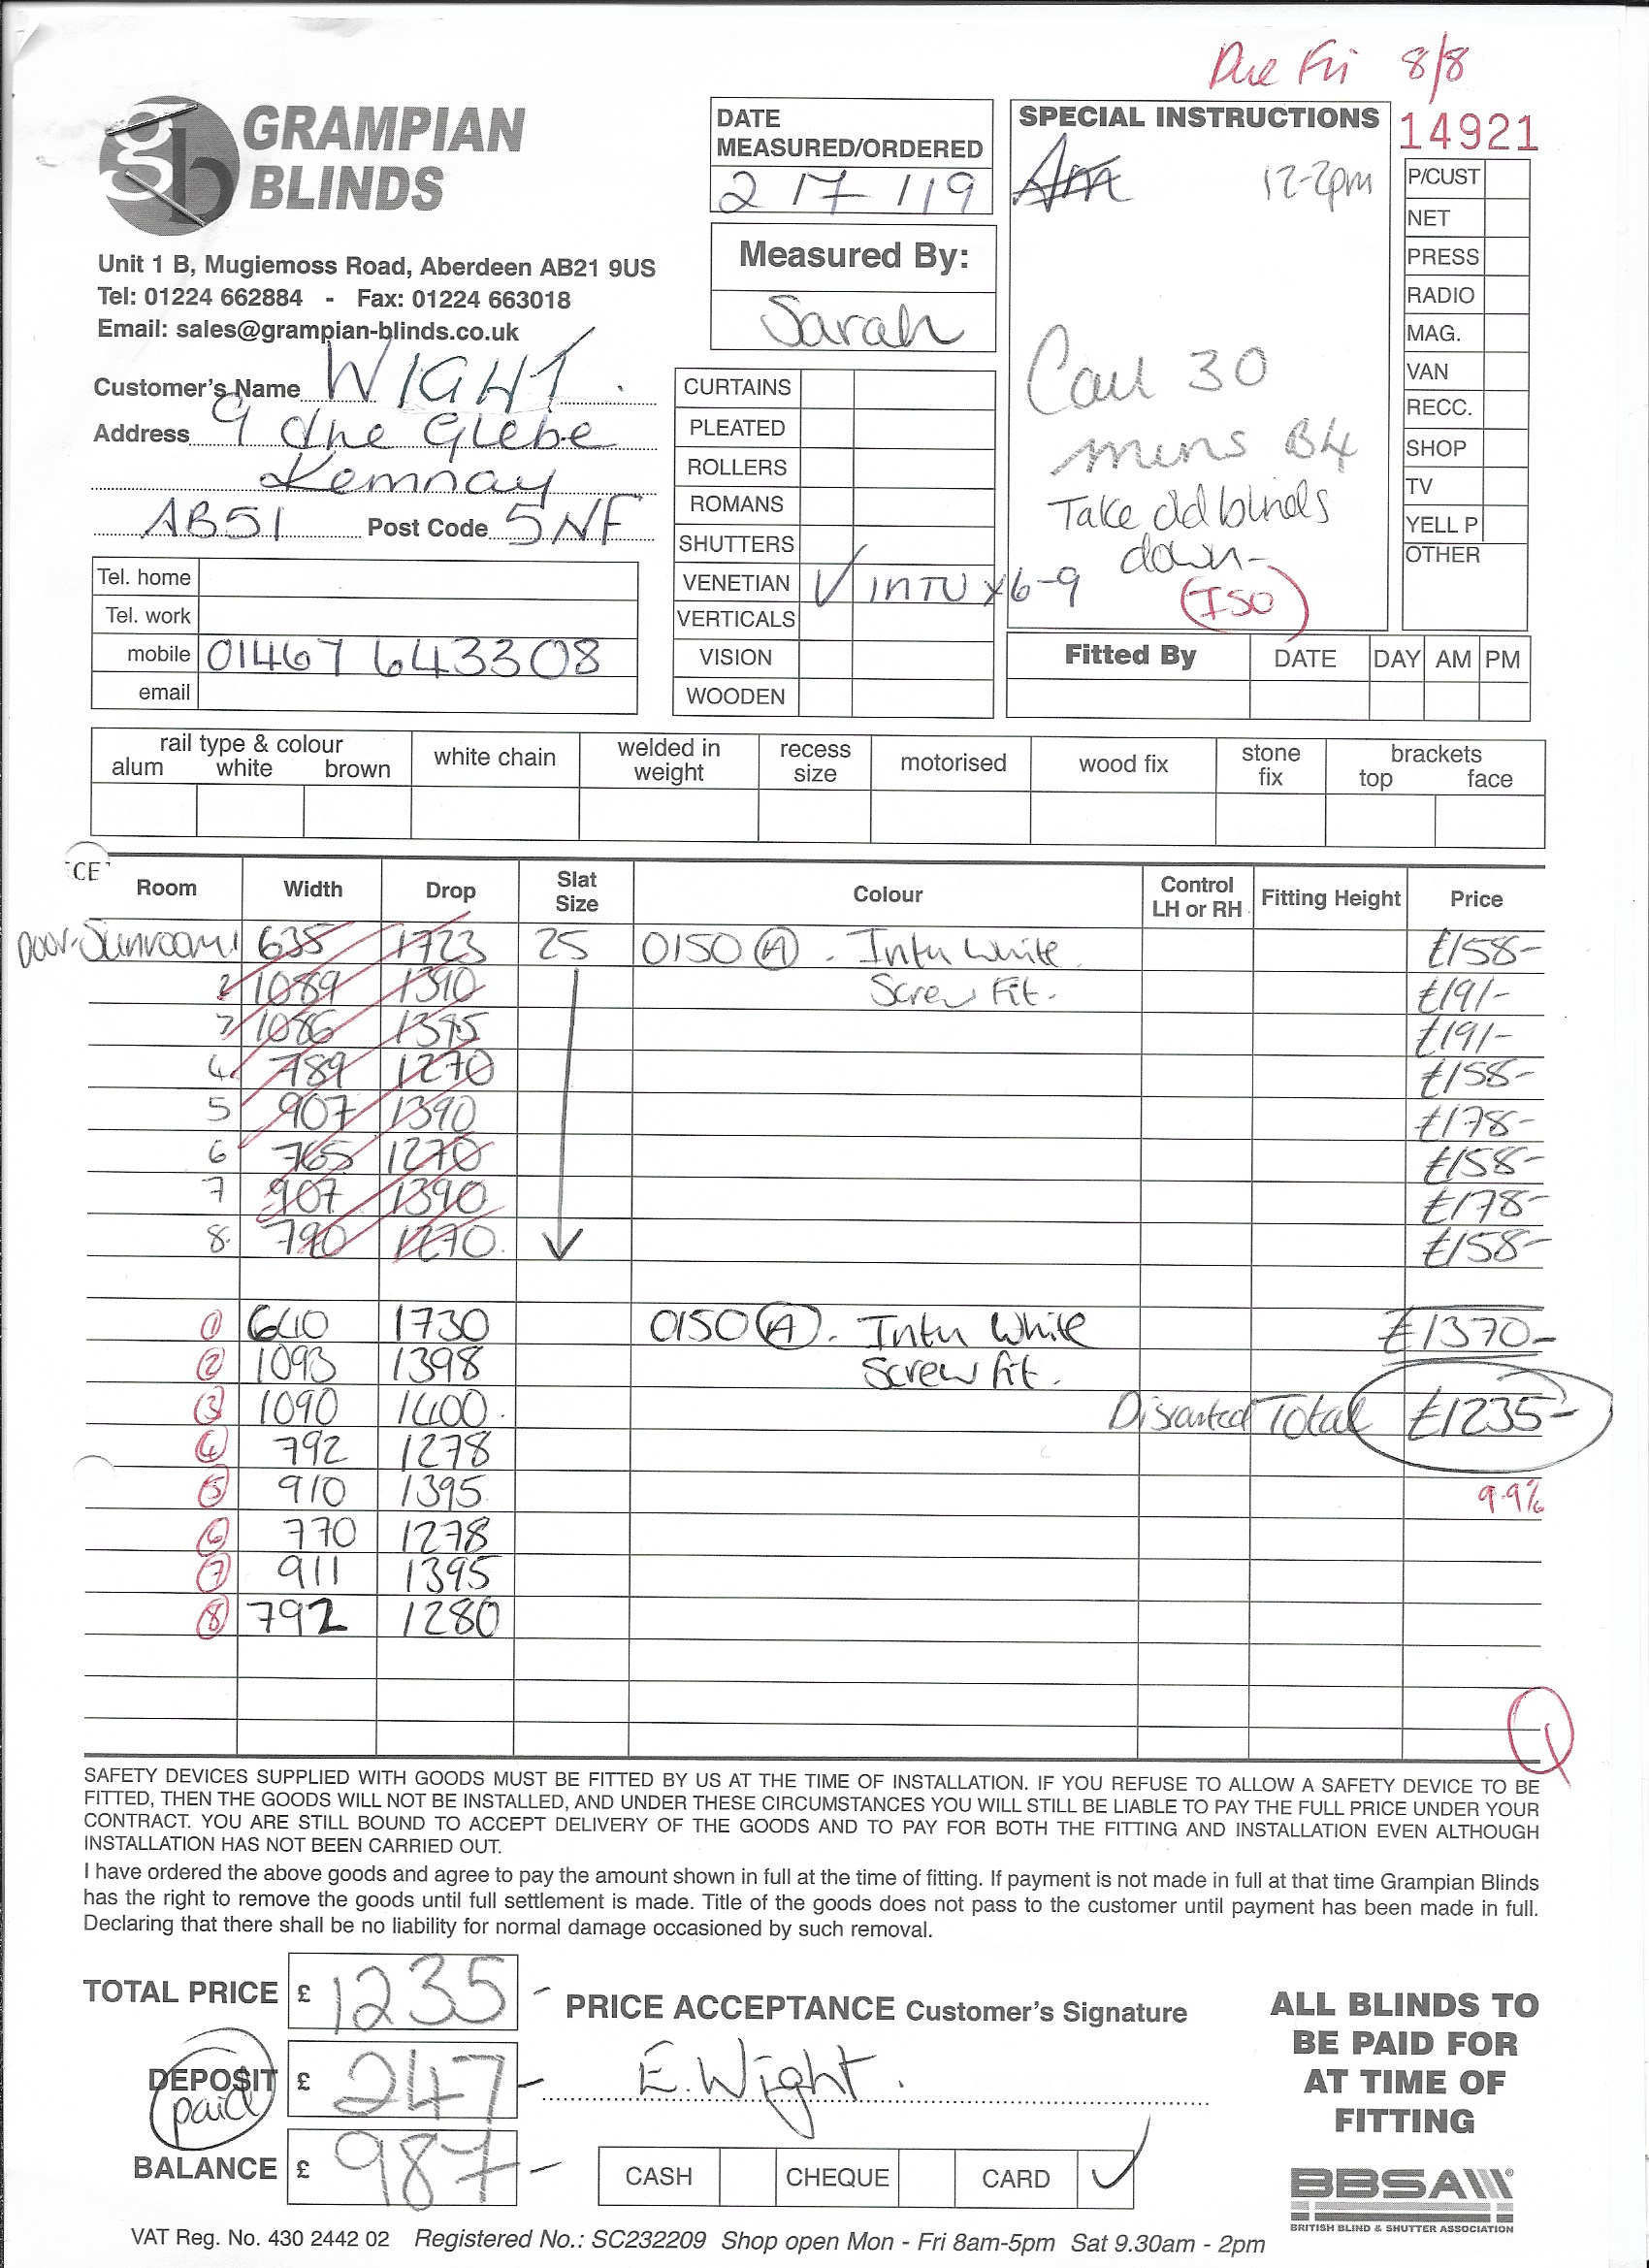 Due Fri 8/8
gb GRAMPIAN
BLINDS
Unit 1 B, Mugiemoss Road, Aberdeen AB21 9US
Tel: 01224 662884 - Fax: 01224 663018
Email: sales@grampian-blinds.co.uk
Customer's Name WIGHT
Address 9 the Glebe
Kemnay
AB51 Post Code 5NF
Tel. home
Tel. work
mobile 01467 643308
email
DATE
MEASURED/ORDERED
2 17 119
Measured By:
Sarah
CURTAINS
PLEATED
ROLLERS
ROMANS
SHUTTERS
VENETIAN ✓ INTU x6-9
VERTICALS
VISION
WOODEN
SPECIAL INSTRUCTIONS
Am 12-2pm
Call 30
mins B4
Take old blinds
down-
ISO
14921
P/CUST
NET
PRESS
RADIO
MAG.
VAN
RECC.
SHOP
TV
YELL P
OTHER
Fitted By DATE DAY AM PM
rail type & colour white chain welded in weight recess size motorised wood fix stone fix brackets
alum white brown top face
CE
Room Width Drop Slat Size Colour Control LH or RH Fitting Height Price
Door-Sunroom 1 635 1723 25 0150 A. Intu White £158-
2 1089 1390 Screw Fit. £191/-
3 1086 1395 £191/-
4 789 1270 £158-
5 907 1390 £178-
6 765 1270 £158-
7 907 1390 £178-
8. 790 1270. £158-
1 640 1730 0150 A. Intu White £1370-
2 1093 1398 Screw fit.
3 1090 1400. Discounted Total £1235-
4 792 1278
5 910 1395 9.9%
6 770 1278
7 911 1395
8 792 1280
SAFETY DEVICES SUPPLIED WITH GOODS MUST BE FITTED BY US AT THE TIME OF INSTALLATION. IF YOU REFUSE TO ALLOW A SAFETY DEVICE TO BE
FITTED, THEN THE GOODS WILL NOT BE INSTALLED, AND UNDER THESE CIRCUMSTANCES YOU WILL STILL BE LIABLE TO PAY THE FULL PRICE UNDER YOUR
CONTRACT. YOU ARE STILL BOUND TO ACCEPT DELIVERY OF THE GOODS AND TO PAY FOR BOTH THE FITTING AND INSTALLATION EVEN ALTHOUGH
INSTALLATION HAS NOT BEEN CARRIED OUT.
I have ordered the above goods and agree to pay the amount shown in full at the time of fitting. If payment is not made in full at that time Grampian Blinds
has the right to remove the goods until full settlement is made. Title of the goods does not pass to the customer until payment has been made in full.
Declaring that there shall be no liability for normal damage occasioned by such removal.
TOTAL PRICE £ 1235-
DEPOSIT £ 247-
paid
BALANCE £ 987-
PRICE ACCEPTANCE Customer's Signature
E. Wight.
CASH CHEQUE CARD ✓
ALL BLINDS TO
BE PAID FOR
AT TIME OF
FITTING
BBSA
BRITISH BLIND & SHUTTER ASSOCIATION
VAT Reg. No. 430 2442 02 Registered No.: SC232209 Shop open Mon - Fri 8am-5pm Sat 9.30am - 2pm